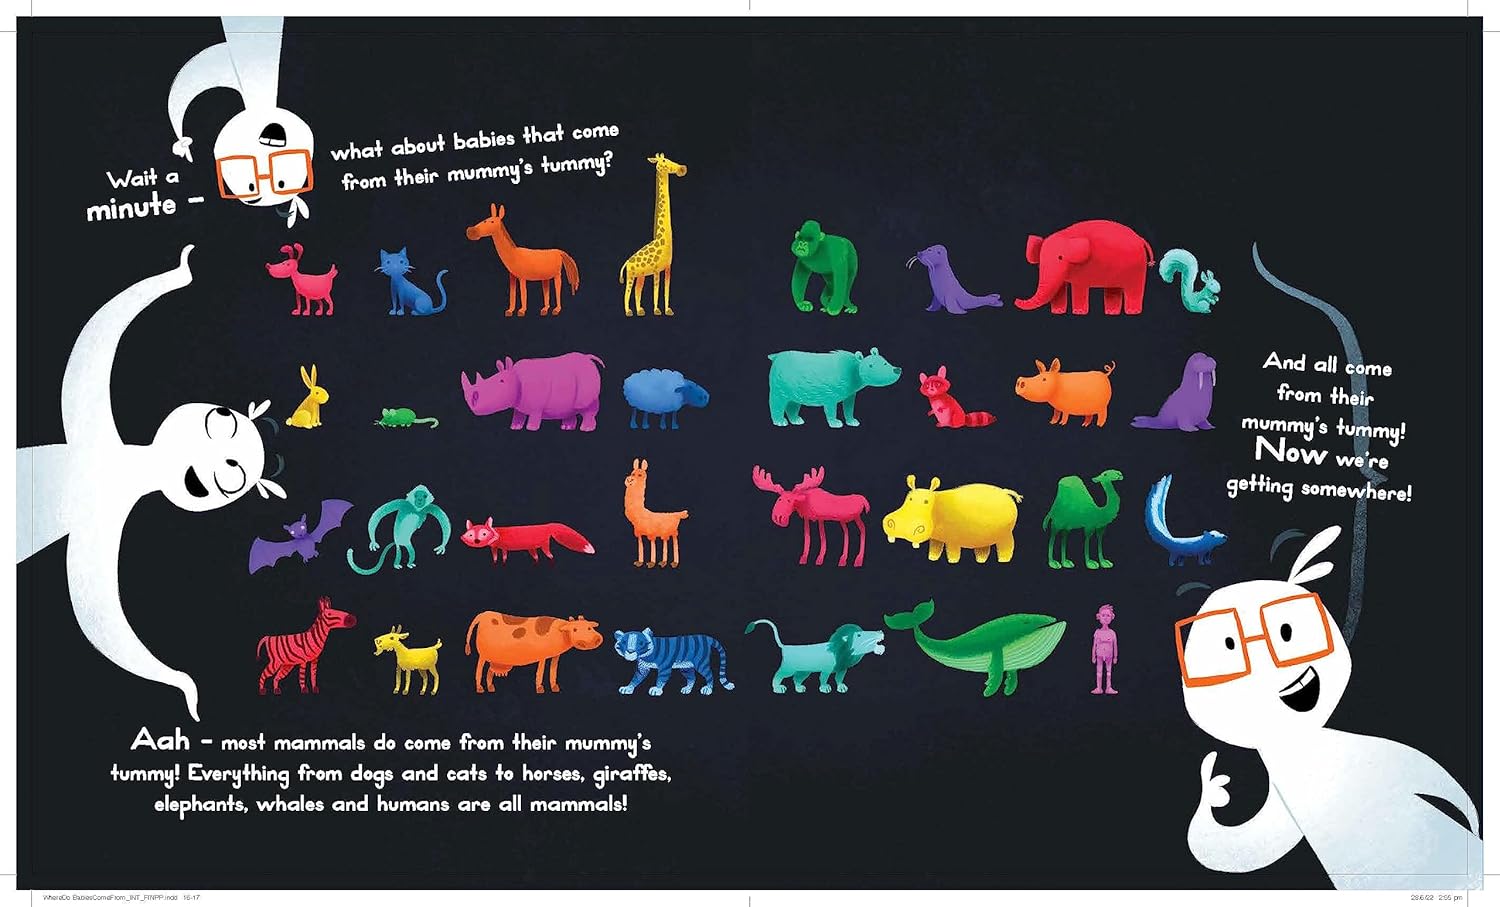 Wait a
minute –
what about babies that come
from their mummy's tummy?
And all come
from their
mummy's tummy!
Now we're
getting somewhere!
Aah – most mammals do come from their mummy's
tummy! Everything from dogs and cats to horses, giraffes,
elephants, whales and humans are all mammals!
WhereDo BabiesComeFrom_INT_FINPP.indd 16-17
28/6/22 2:55 pm